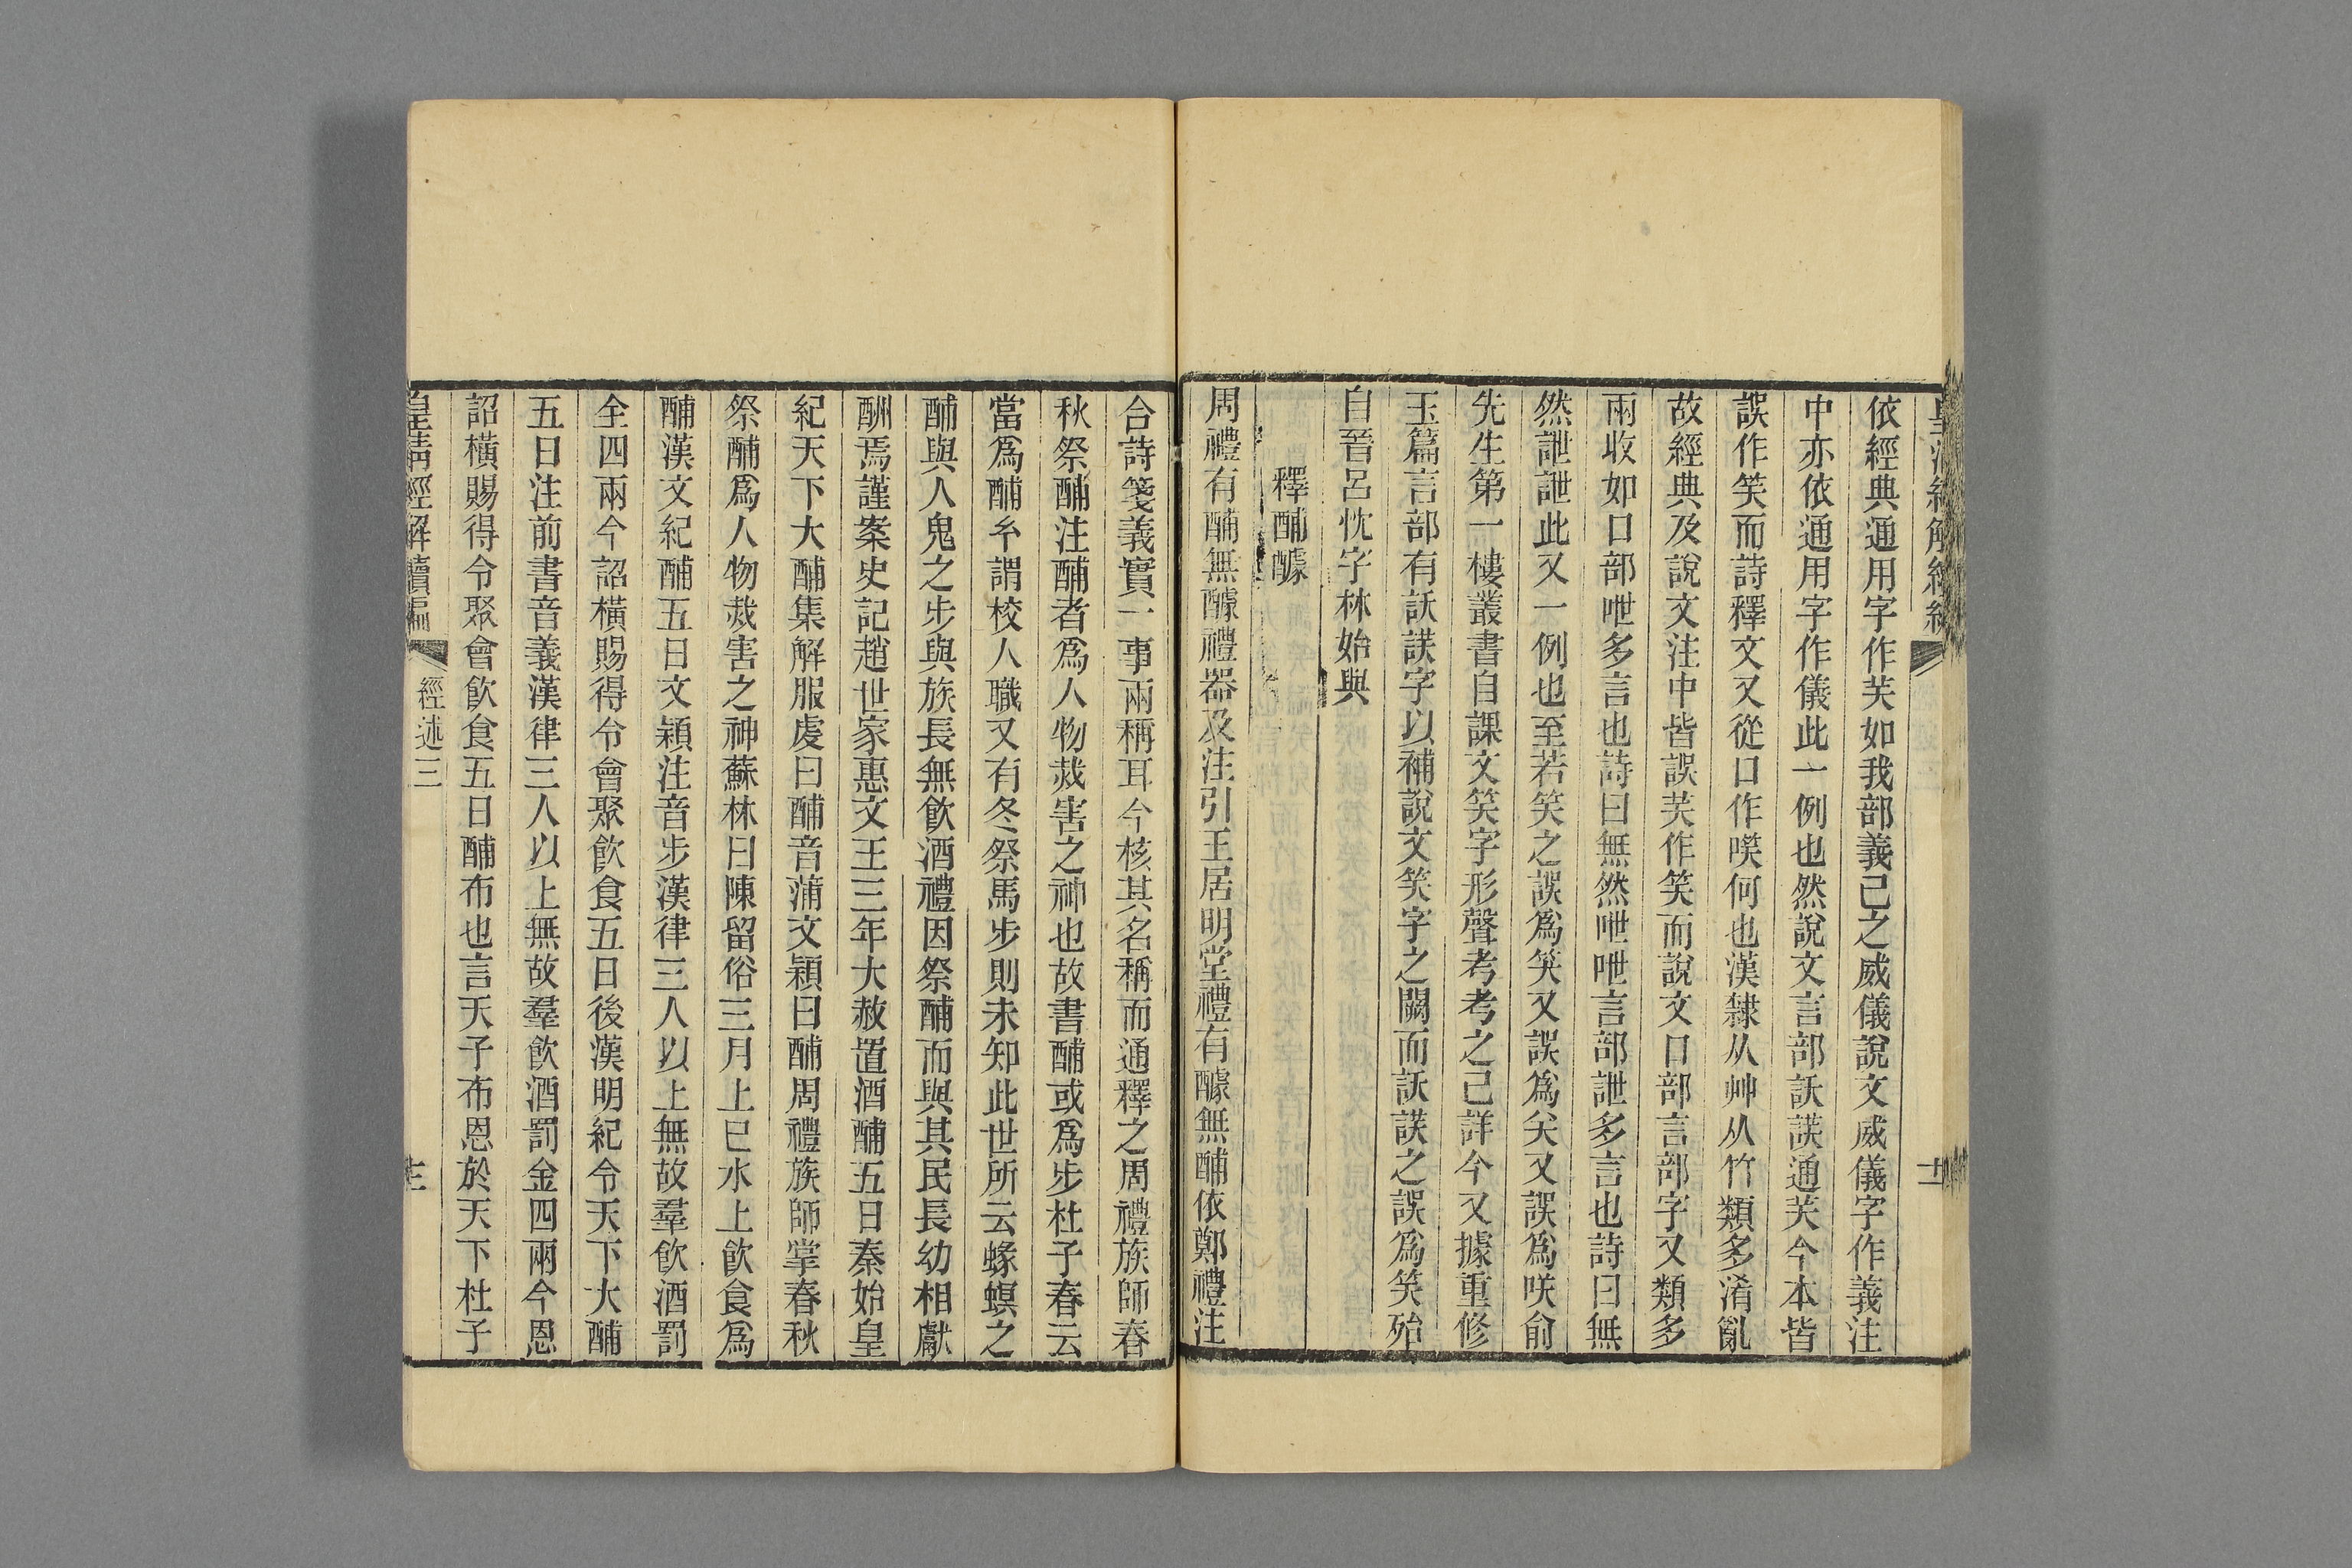 依經典通用字作芺如我部義己之威儀說文威儀字作義注
中亦依通用字作儀此一例也然說文言部訞䛥通芺今本皆
誤作笑而詩釋文又從口作㗛何也漢隸从艸从竹類多淆亂
故經典及說文注中皆誤芺作笑而說文口部言部字又類多
兩收如口部呭多言也詩曰無然呭呭言部詍多言也詩曰無
然詍詍此又一例也至若笑之誤爲笑又誤爲关又誤爲咲俞
先生第一樓叢書自課文笑字形聲考考之己詳今又據重修
玉篇言部有訞䛥字以補說文笑字之闕而訞䛥之誤爲笑殆
自晉呂忱字林始與
釋酺醵
周禮有酺無醵禮器及注引王居明堂禮有醵無酺依鄭禮注
合詩箋義實一事兩稱耳今核其名稱而通釋之周禮族師春
秋祭酺注酺者爲人物烖害之神也故書酺或爲步杜子春云
當爲酺㒰謂校人職又有冬祭馬步則未知此世所云蝝螟之
酺與人鬼之步與族長無飲酒禮因祭酺而與其民長幼相獻
酬焉謹案史記趙世家惠文王三年大赦置酒酺五日秦始皇
紀天下大酺集解服虔曰酺音蒲文穎曰酺周禮族師掌春秋
祭酺爲人物烖害之神蘇林曰陳留俗三月上巳水上飲食爲
酺漢文紀酺五日文穎注音步漢律三人以上無故羣飲酒罰
全四兩今詔橫賜得令會聚飲食五日後漢明紀令天下大酺
五日注前書音義漢律三人以上無故羣飲酒罰金四兩今恩
詔橫賜得令聚會飲食五日酺布也言天子布恩於天下杜子
皇清經解續編
經述三